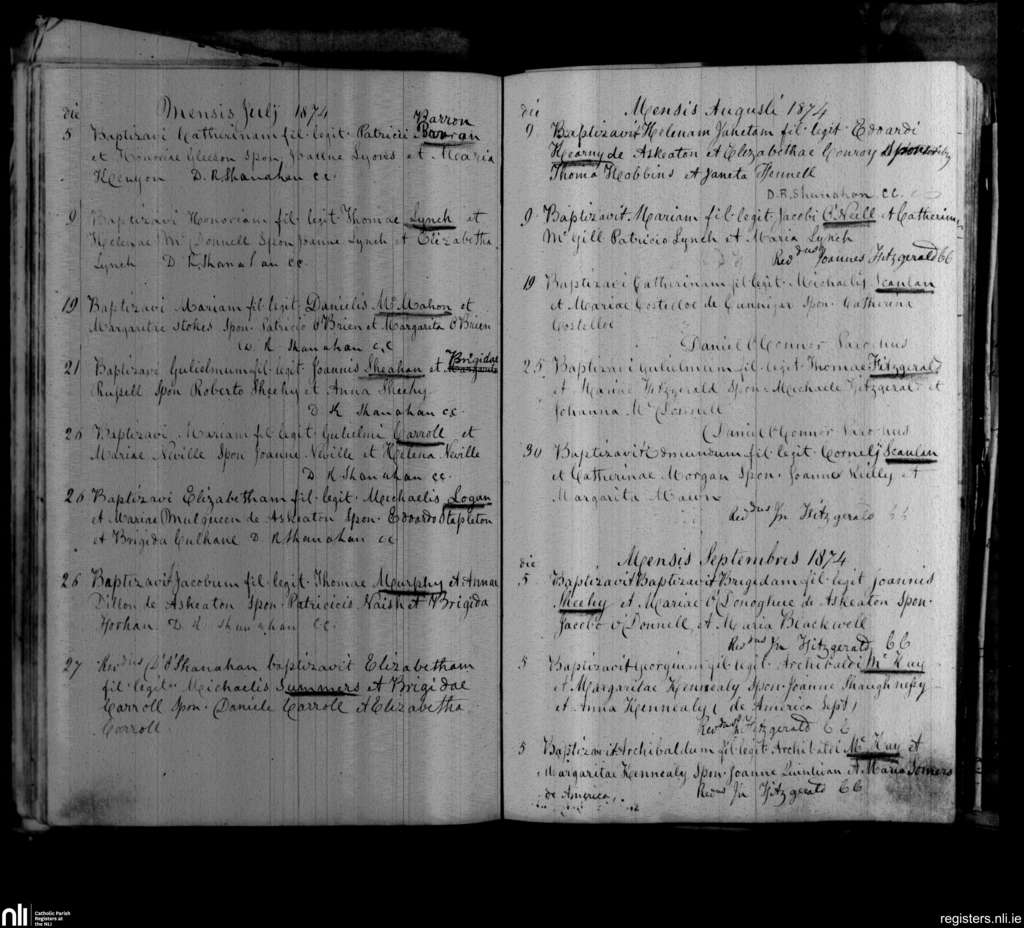 die Mensis Julij 1874
Barron
5 Baptizavi Catherinam fil. legit. Patricii Barran
et Honoriae Gleeson Spon. Joanne Lyons et Maria
Kenyon D. R. Shanahan cc.
9 Baptizavi Honoriam fil. legit. Thomae Lynch et
Helenae Mc Donnell Spon Joanne Lynch et Elizabetha
Lynch D R Shanahan cc.
19 Baptizavi Mariam fil. legit. Danielis Mc Mahon et
Margaritae Stokes Spon. Patricio O'Brien et Margarita O'Brien
R Shanahan c.c
Brigidae
21 Baptizavi Gulielmum fil. legit. Joannis Sheahan et Margarita
Russell Spon Roberto Sheehy et Anna Sheehy
D R Shanahan cc.
26 Baptizavi Mariam fil. legit. Gulielmi Carroll et
Mariae Neville Spon Joanne Neville et Helena Neville
D R Shanahan cc.
26 Baptizavi Elizabetham fil. legit. Michaelis Logan
et Mariae Mulqueen de Askeaton Spon. Edoardo Stapleton
et Brigida Culhane D. R Shanahan cc
26 Baptizavit Jacobum fil. legit. Thomae Murphy et Annae
Dillon de Askeaton Spon. Patricius Naish et Brigida
Horhan. D R Shanahan CC.
27 Revdus D. O'Shanahan baptizavit Elizabetham
fil. legit. Michaelis Summers et Brigidae
Carroll Spon. Daniele Carroll et Elizabetha
Carroll
die Mensis Augusti 1874
9 Baptizavit Helenam Janetam fil. legit Edoardi
Kearny de Askeaton et Elizabethae Conroy Spon
Thoma Hobbins et Janeta Fennell
D. R. Shanahan. CC.
9. Baptizavit Mariam fil. legit. Jacobi O'Neill et Catherinae
Mc Gill Patricio Lynch et Maria Lynch
Revdus Joannes Fitzgerald CC
19 Baptizavi Catherinam fil. legit. Michaelis Scanlan
et Mariae Costelloe de Cunnigar Spon. Catherina
Costelloe
Daniel O'Connor Parochus
25. Baptizavi Gulielmum fil. legit. Thomae Fitzgerald
et Mariae Fitzgerald Spon. Michaele Fitzgerald et
Johanna Mc Donnell
Daniel O'Connor Parochus
30 Baptizavit Edmundum fil. legit. Cornelij Scanlan
et Catherinae Morgan Spon. Joanne Kielly et
Margarita Mawn
Revdus Jn Fitzgerald CC
die Mensis Septembris 1874
5 Baptizavit Baptizavit Brigidam fil. legit Joannis
Sheehy et Mariae O'Donoghue de Askeaton Spon.
Jacobo O'Donnell et Maria Blackwell
Revdus Jn Fitzgerald CC
5 Baptizavit Georgium fil. legit. Archibaldi Mc Kay
et Margaritae Kennealy Spon. Joanne Shaughnessy
et Anna Kennealy (de America Sept)
Revdus Jn Fitzgerald CC
5 Baptizavit Archibaldum fil. legit. Archibaldi Mc Kay et
Margaritae Kennealy Spon. Joanne Quinlivan et Maria Somers
de America, Revdus Jn Fitzgerald CC
nli Catholic Parish
Registers at
the NLI
registers.nli.ie